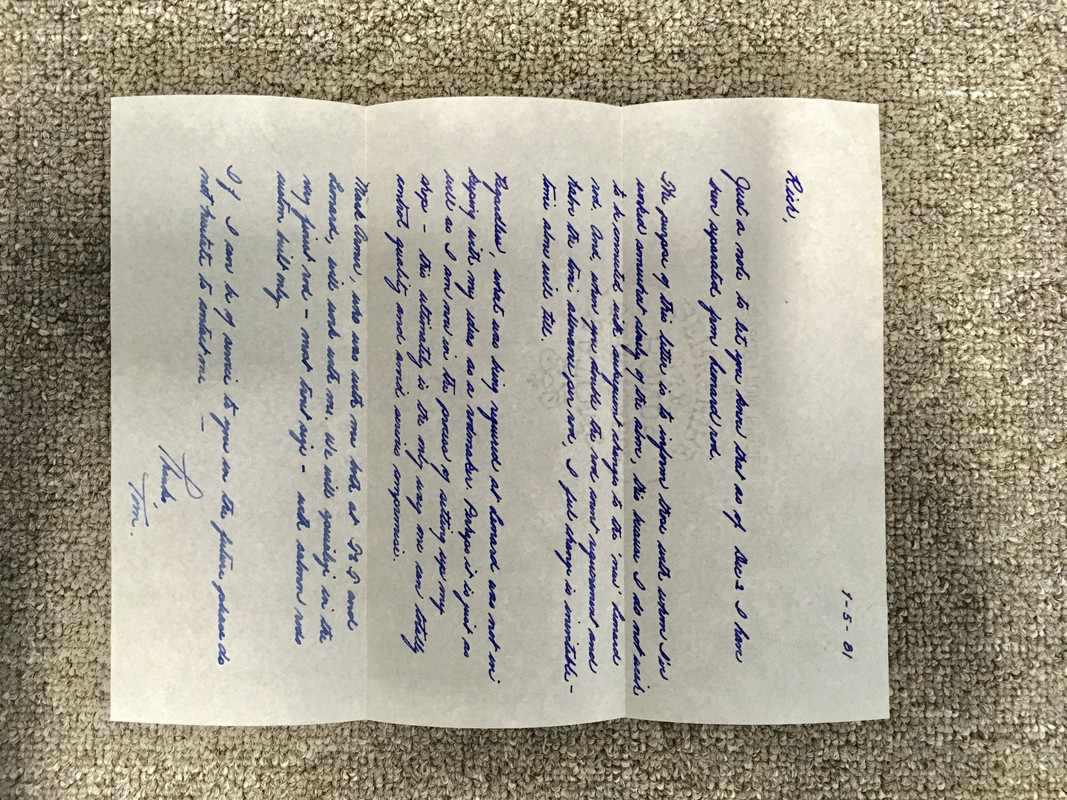 1-5-81
Rick,
Just a note to let you know that as of Dec 2 I have
been separated from Leonard rod.
The purpose of this letter is to inform those with whom I've
worked somewhat closely of the above, this because I do not wish
to be connected with subsequent changes to the 'me' Leonard
rod. And, when you double the rod count requirement and
halve the time allowance per rod, I feel change is inevitable -
time alone will tell.
Regardless, what was being required at Leonard was not in
keeping with my ideas as a rodmaker. Perhaps it is just as
well as I am now in the process of setting up my
shop - this ultimately is the only way one can totally
control quality and avoid various compromise.
Mark, who was with me both at and
Leonard, will work with me. We will specialize in the
very finest rod - most trout size - with salmon rods
custom built only.
If I can be of service to you in the future please do
not hesitate to contact me -
Thanks
Tom.